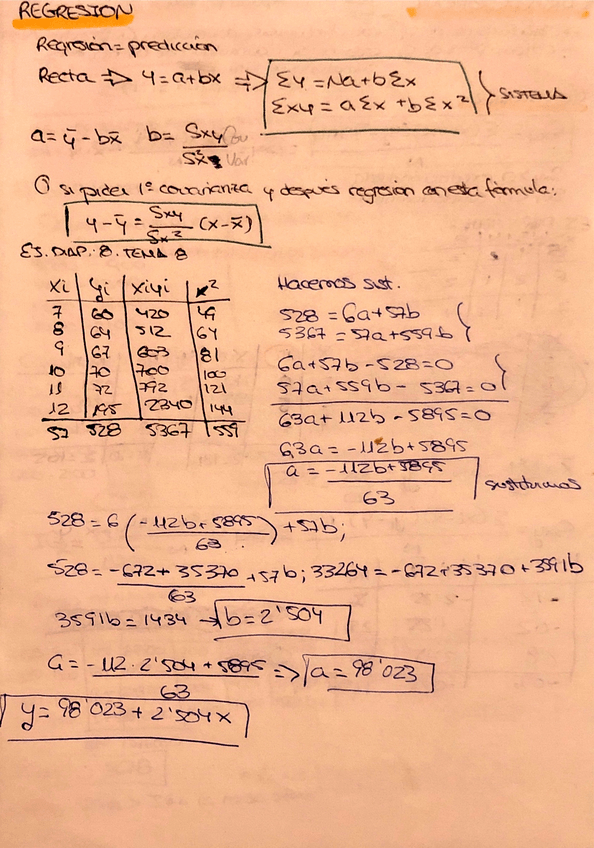 REGRESION
Regresión = predicción
Recta => y = a + bx => Σy = Na + bΣx
Σxy = aΣx + bΣx² } SISTEMA
a = ȳ - bx̄ b = Sxy / Sx² Cov Var
si piden 1º covarianza y después regresión con esta fórmula:
y - ȳ = Sxy / Sx² (x - x̄)
EJ. DIAP. 8. TEMA 8
xi | yi | xiyi | x²
7 | 60 | 420 | 49
8 | 64 | 512 | 64
9 | 67 | 603 | 81
10 | 70 | 700 | 100
11 | 72 | 792 | 121
12 | 195 | 2340 | 144
57 | 528 | 5367 | 559
Hacemos sist.
528 = 6a + 57b
5367 = 57a + 559b
6a + 57b - 528 = 0
57a + 559b - 5367 = 0
63a + 112b - 5895 = 0
63a = -112b + 5895
a = -112b + 5895 / 63 sustituimos
528 = 6 (-112b + 5895 / 63) + 57b;
528 = -672 + 35370 / 63 + 57b; 33264 = -672 + 35370 + 3591b
3591b = 1434 → b = 2'504
a = -112 · 2'504 + 5895 / 63 => a = 98'023
y = 98'023 + 2'504x